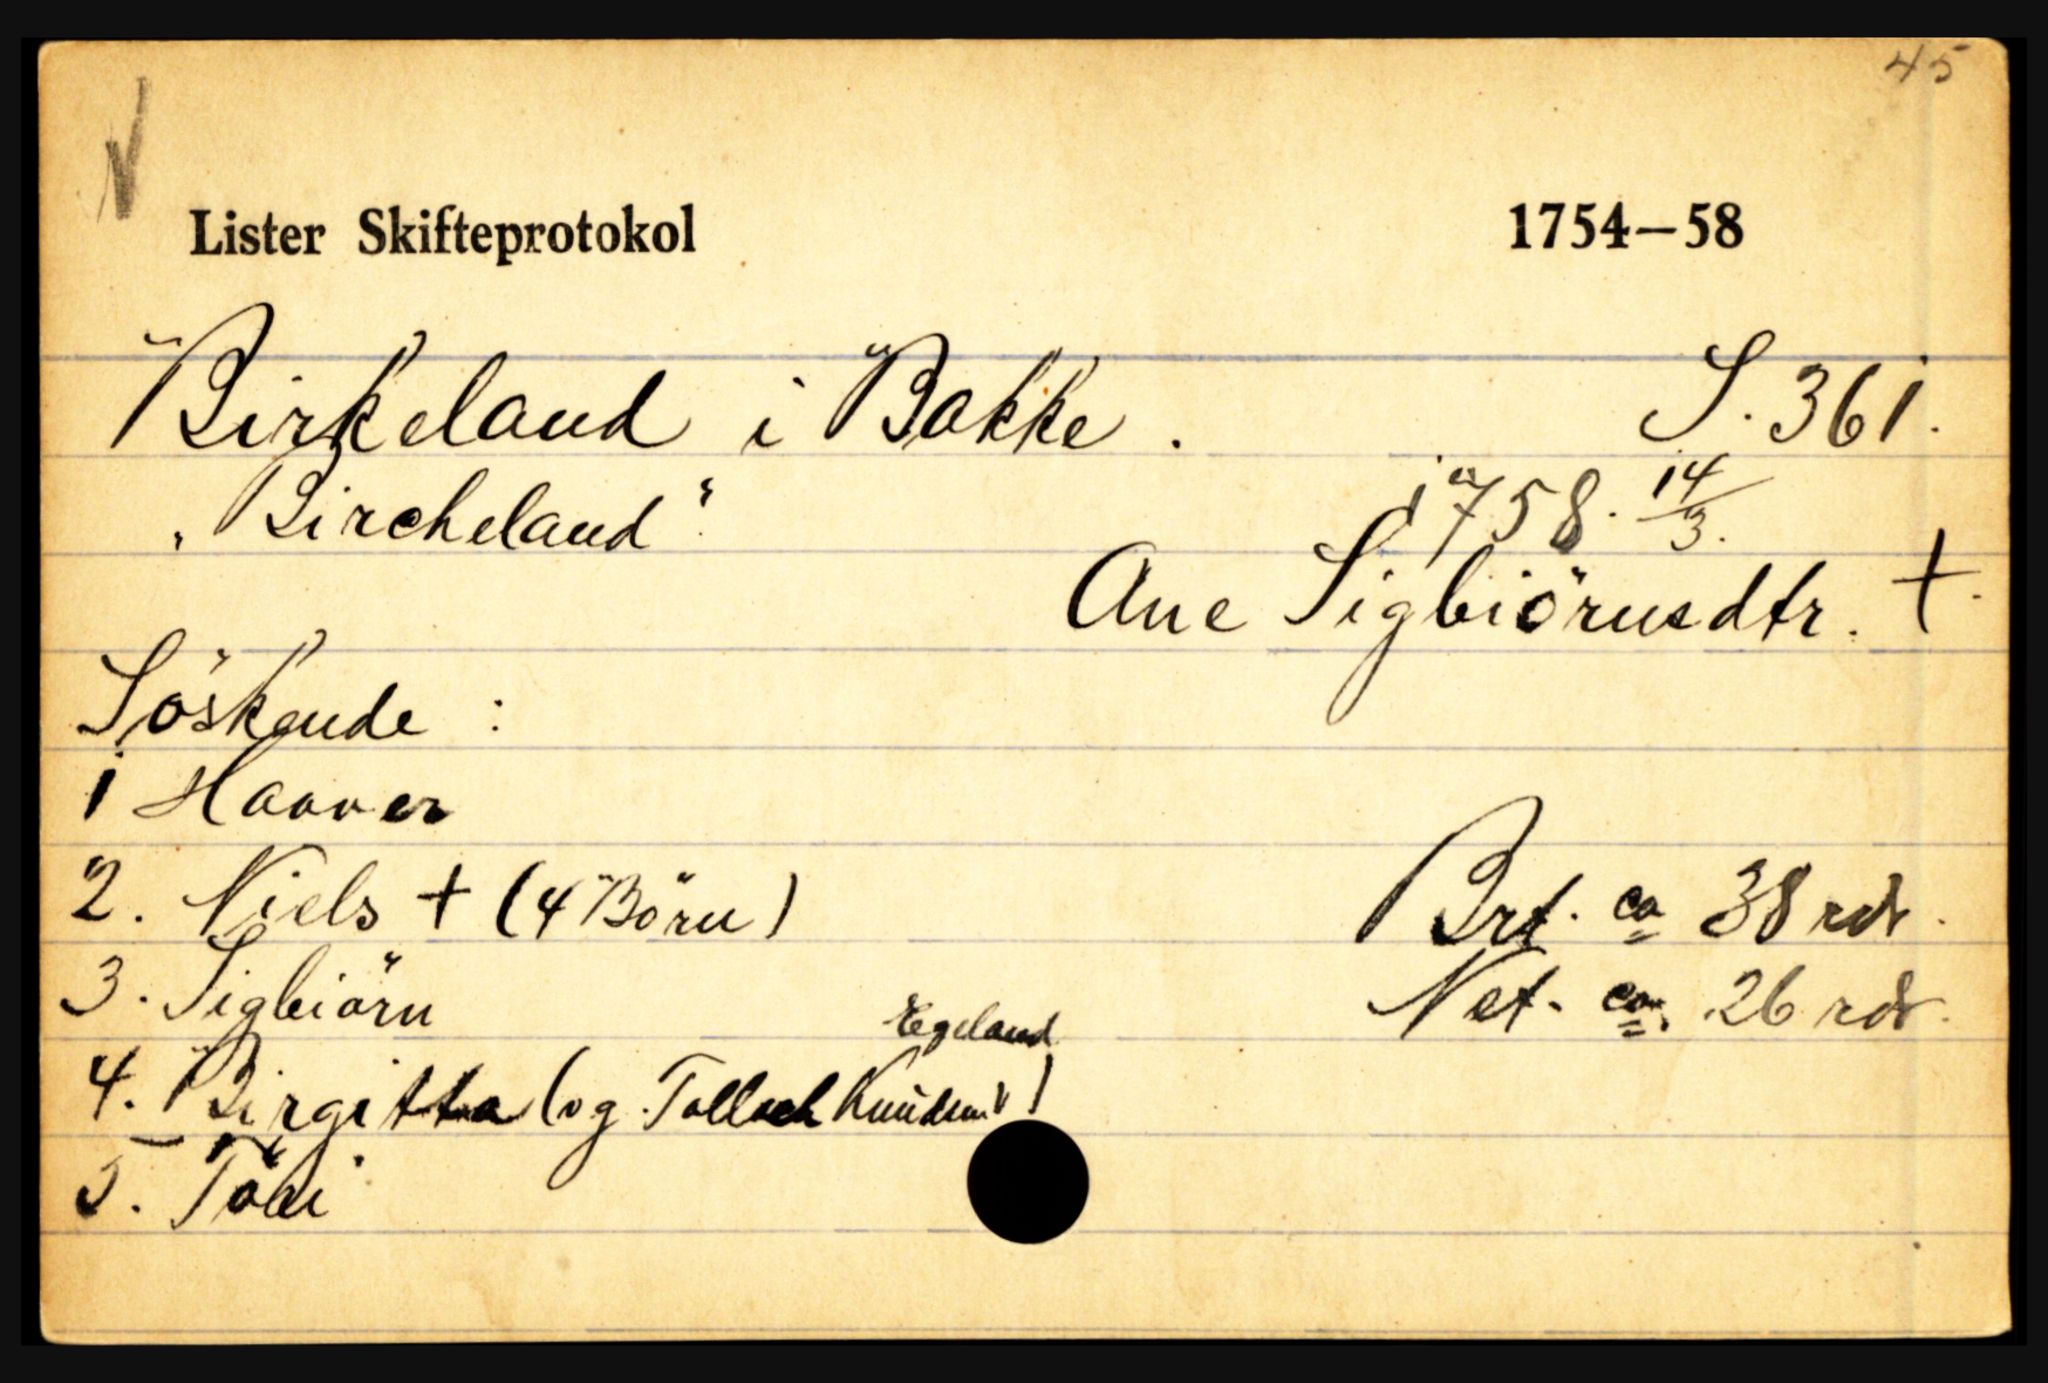 45
Lister Skifteprotokol 1754—58
Birkeland i Bakke. S. 361.
„Bircheland“. 1758. 14/3.
Ane Sigbiörnsdtr. †.
Söskende :
1 Haaver
2. Niels † (4 Börn) Brt. ca 38 rdr.
3. Sigbiörn Net. ca. 26 rdr.
Egeland
4. Birgitta (og Tollach Knudsen)
5. Tori